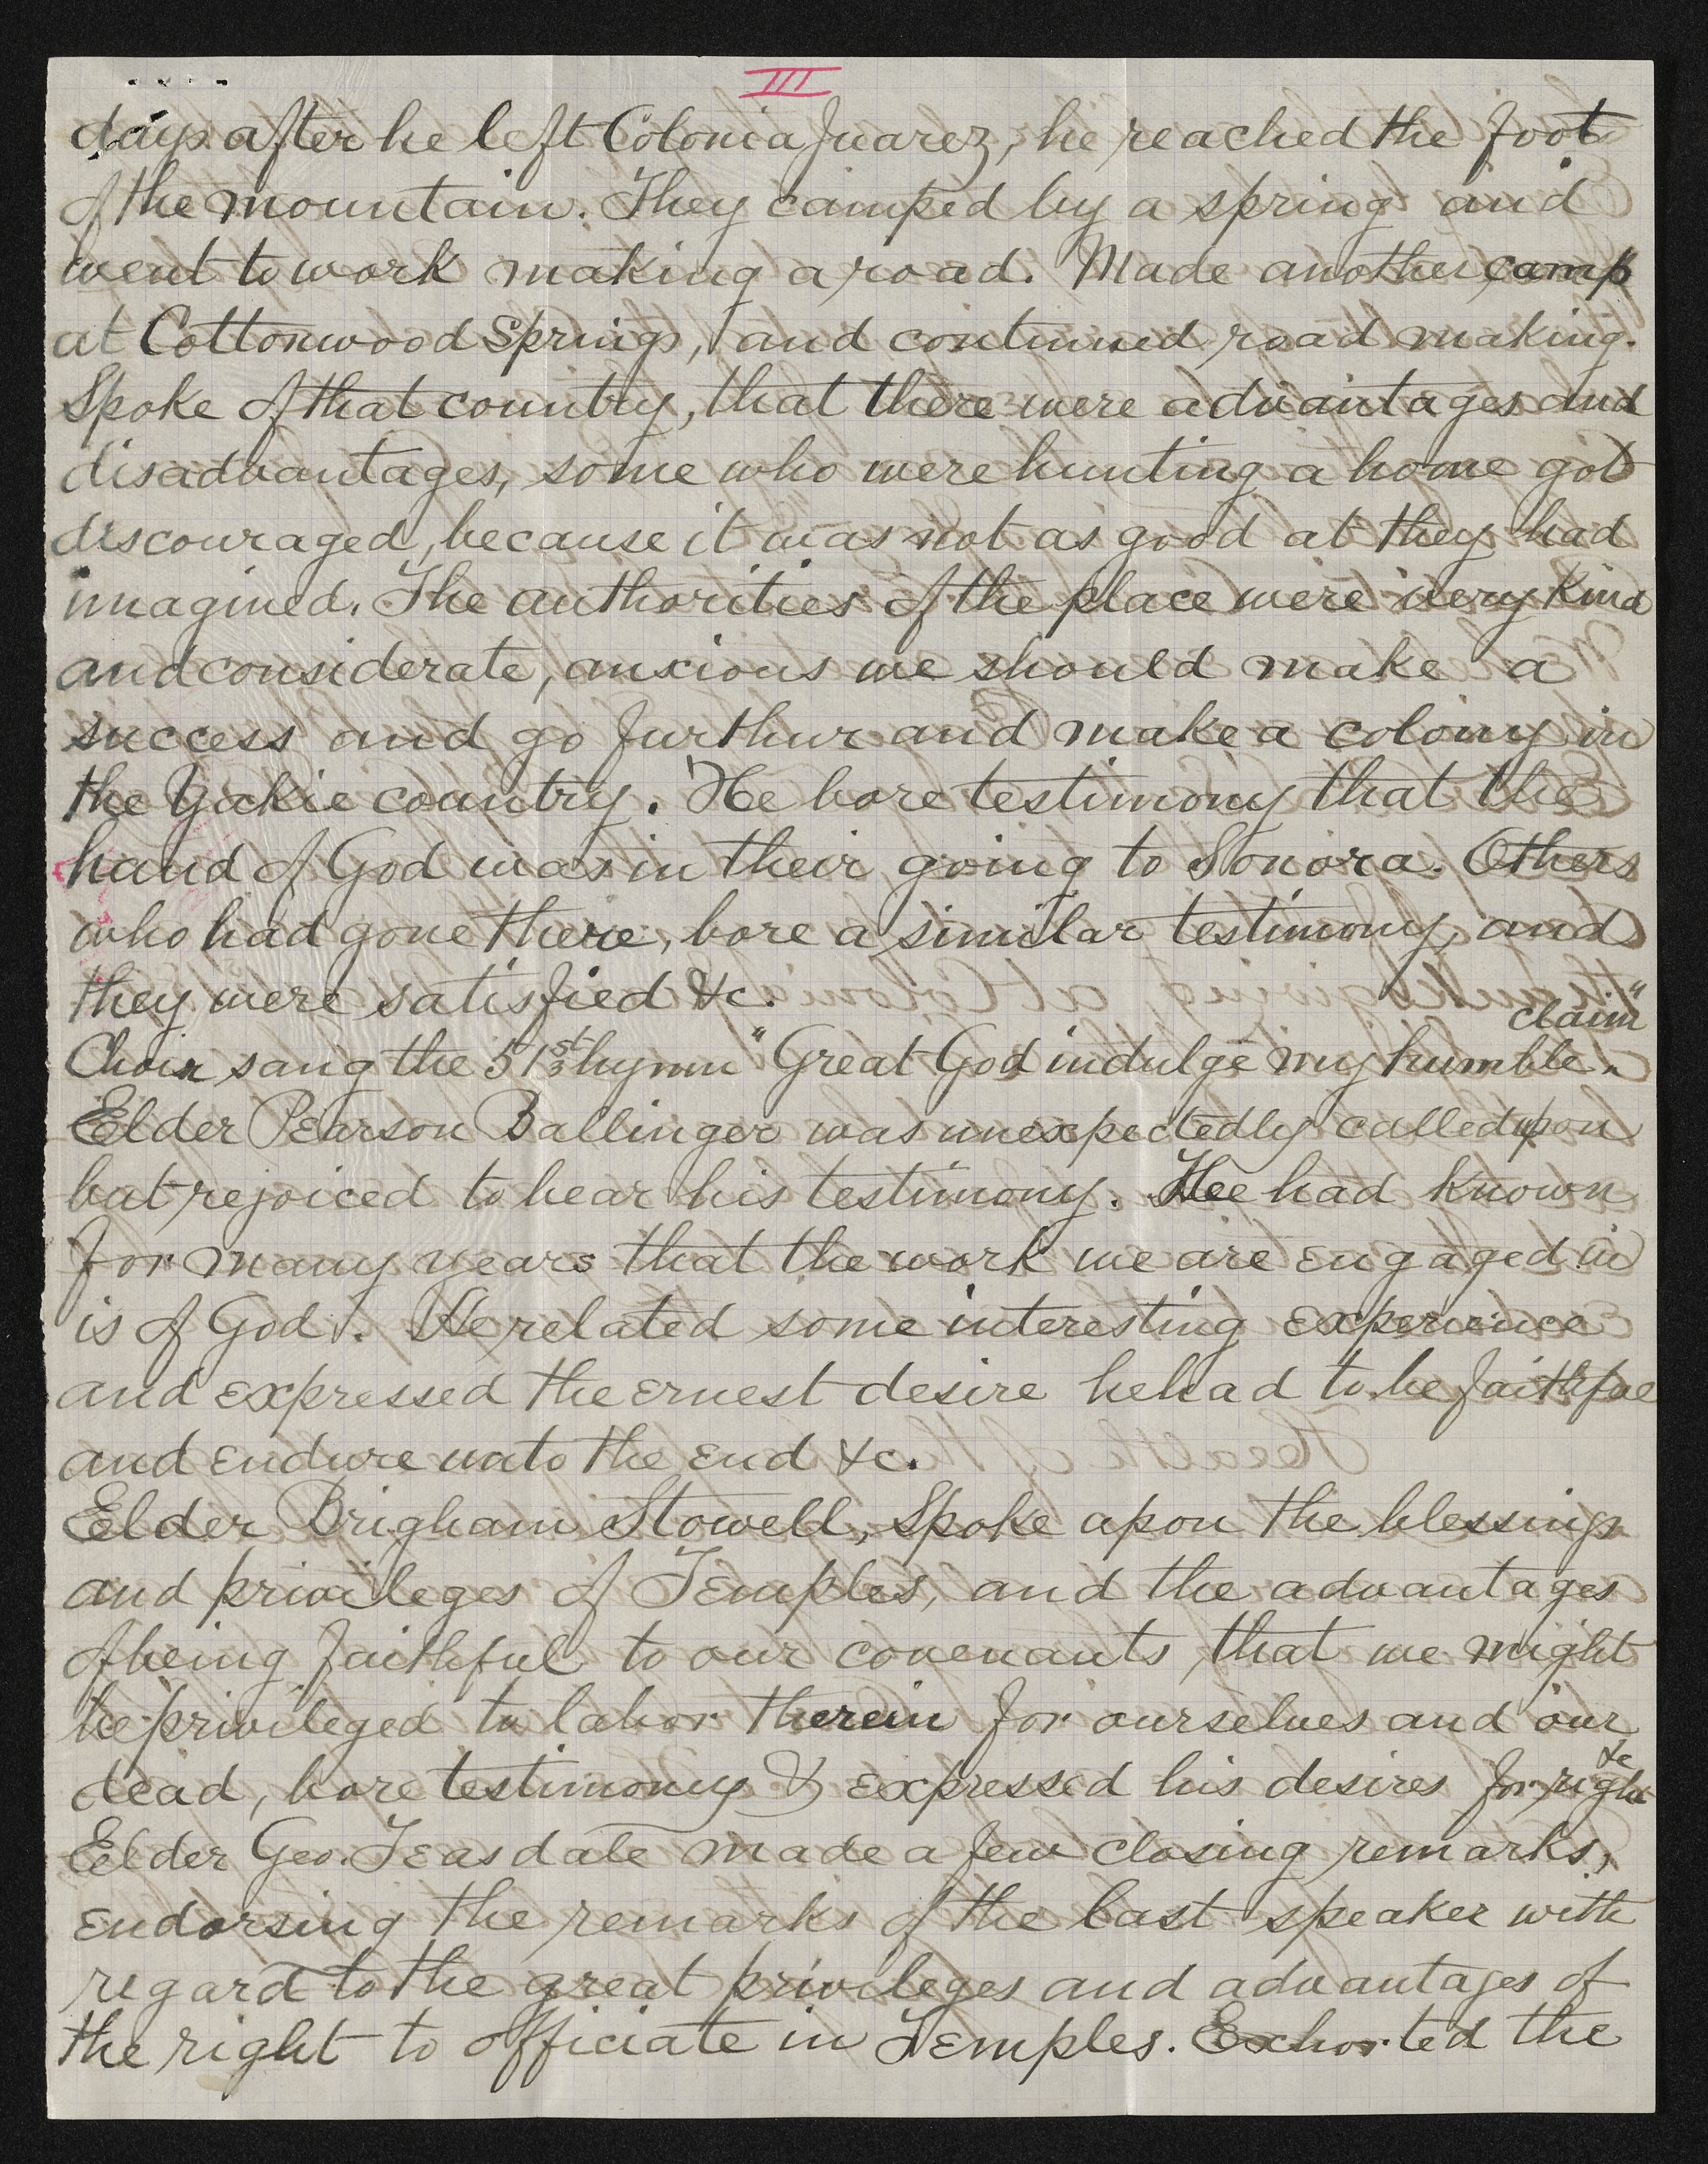 III
days after he left Colonia Juarez, he reached the foot
of the mountain. They camped by a spring and
went to work making a road. Made another camp
at Cottonwood Springs, and continued road making.
Spoke of that country, that there were advantages and
disadvantages, some who were hunting a home got
discouraged, because it was not as good at they had
imagined. The authorities of the place were very kind
and considerate, anxious we should make a
success and go furthur and make a colony in
the Yackie country. He bore testimony that the
hand of God was in their going to Sonora. Others
who had gone there, bore a similar testimony, and
they were satisfied &c.
claim"
Choir sang the 51st hymn "Great God indulge my humble
Elder Pearson Ballinger was unexpectedly called upon
but rejoiced to bear his testimony. Hee had known
for many years that the work we are engaged in
is of God. He related some interesting experience
and expressed the ernest desire he had to be faithful
and endure unto the end &c.
Elder Brigham Stowell, spoke apon the blessings
and privileges of Temples, and the advantages
of being faithful to our covenants, that we might
be privileged to labor therein for ourselves and our
&c
dead, bore testimony & expressed his desires for right
Elder Geo. Teasdale made a few closing remarks,
endorsing the remarks of the last speaker with
regard to the great privileges and advantages of
the right to officiate in Temples. Exhorted the